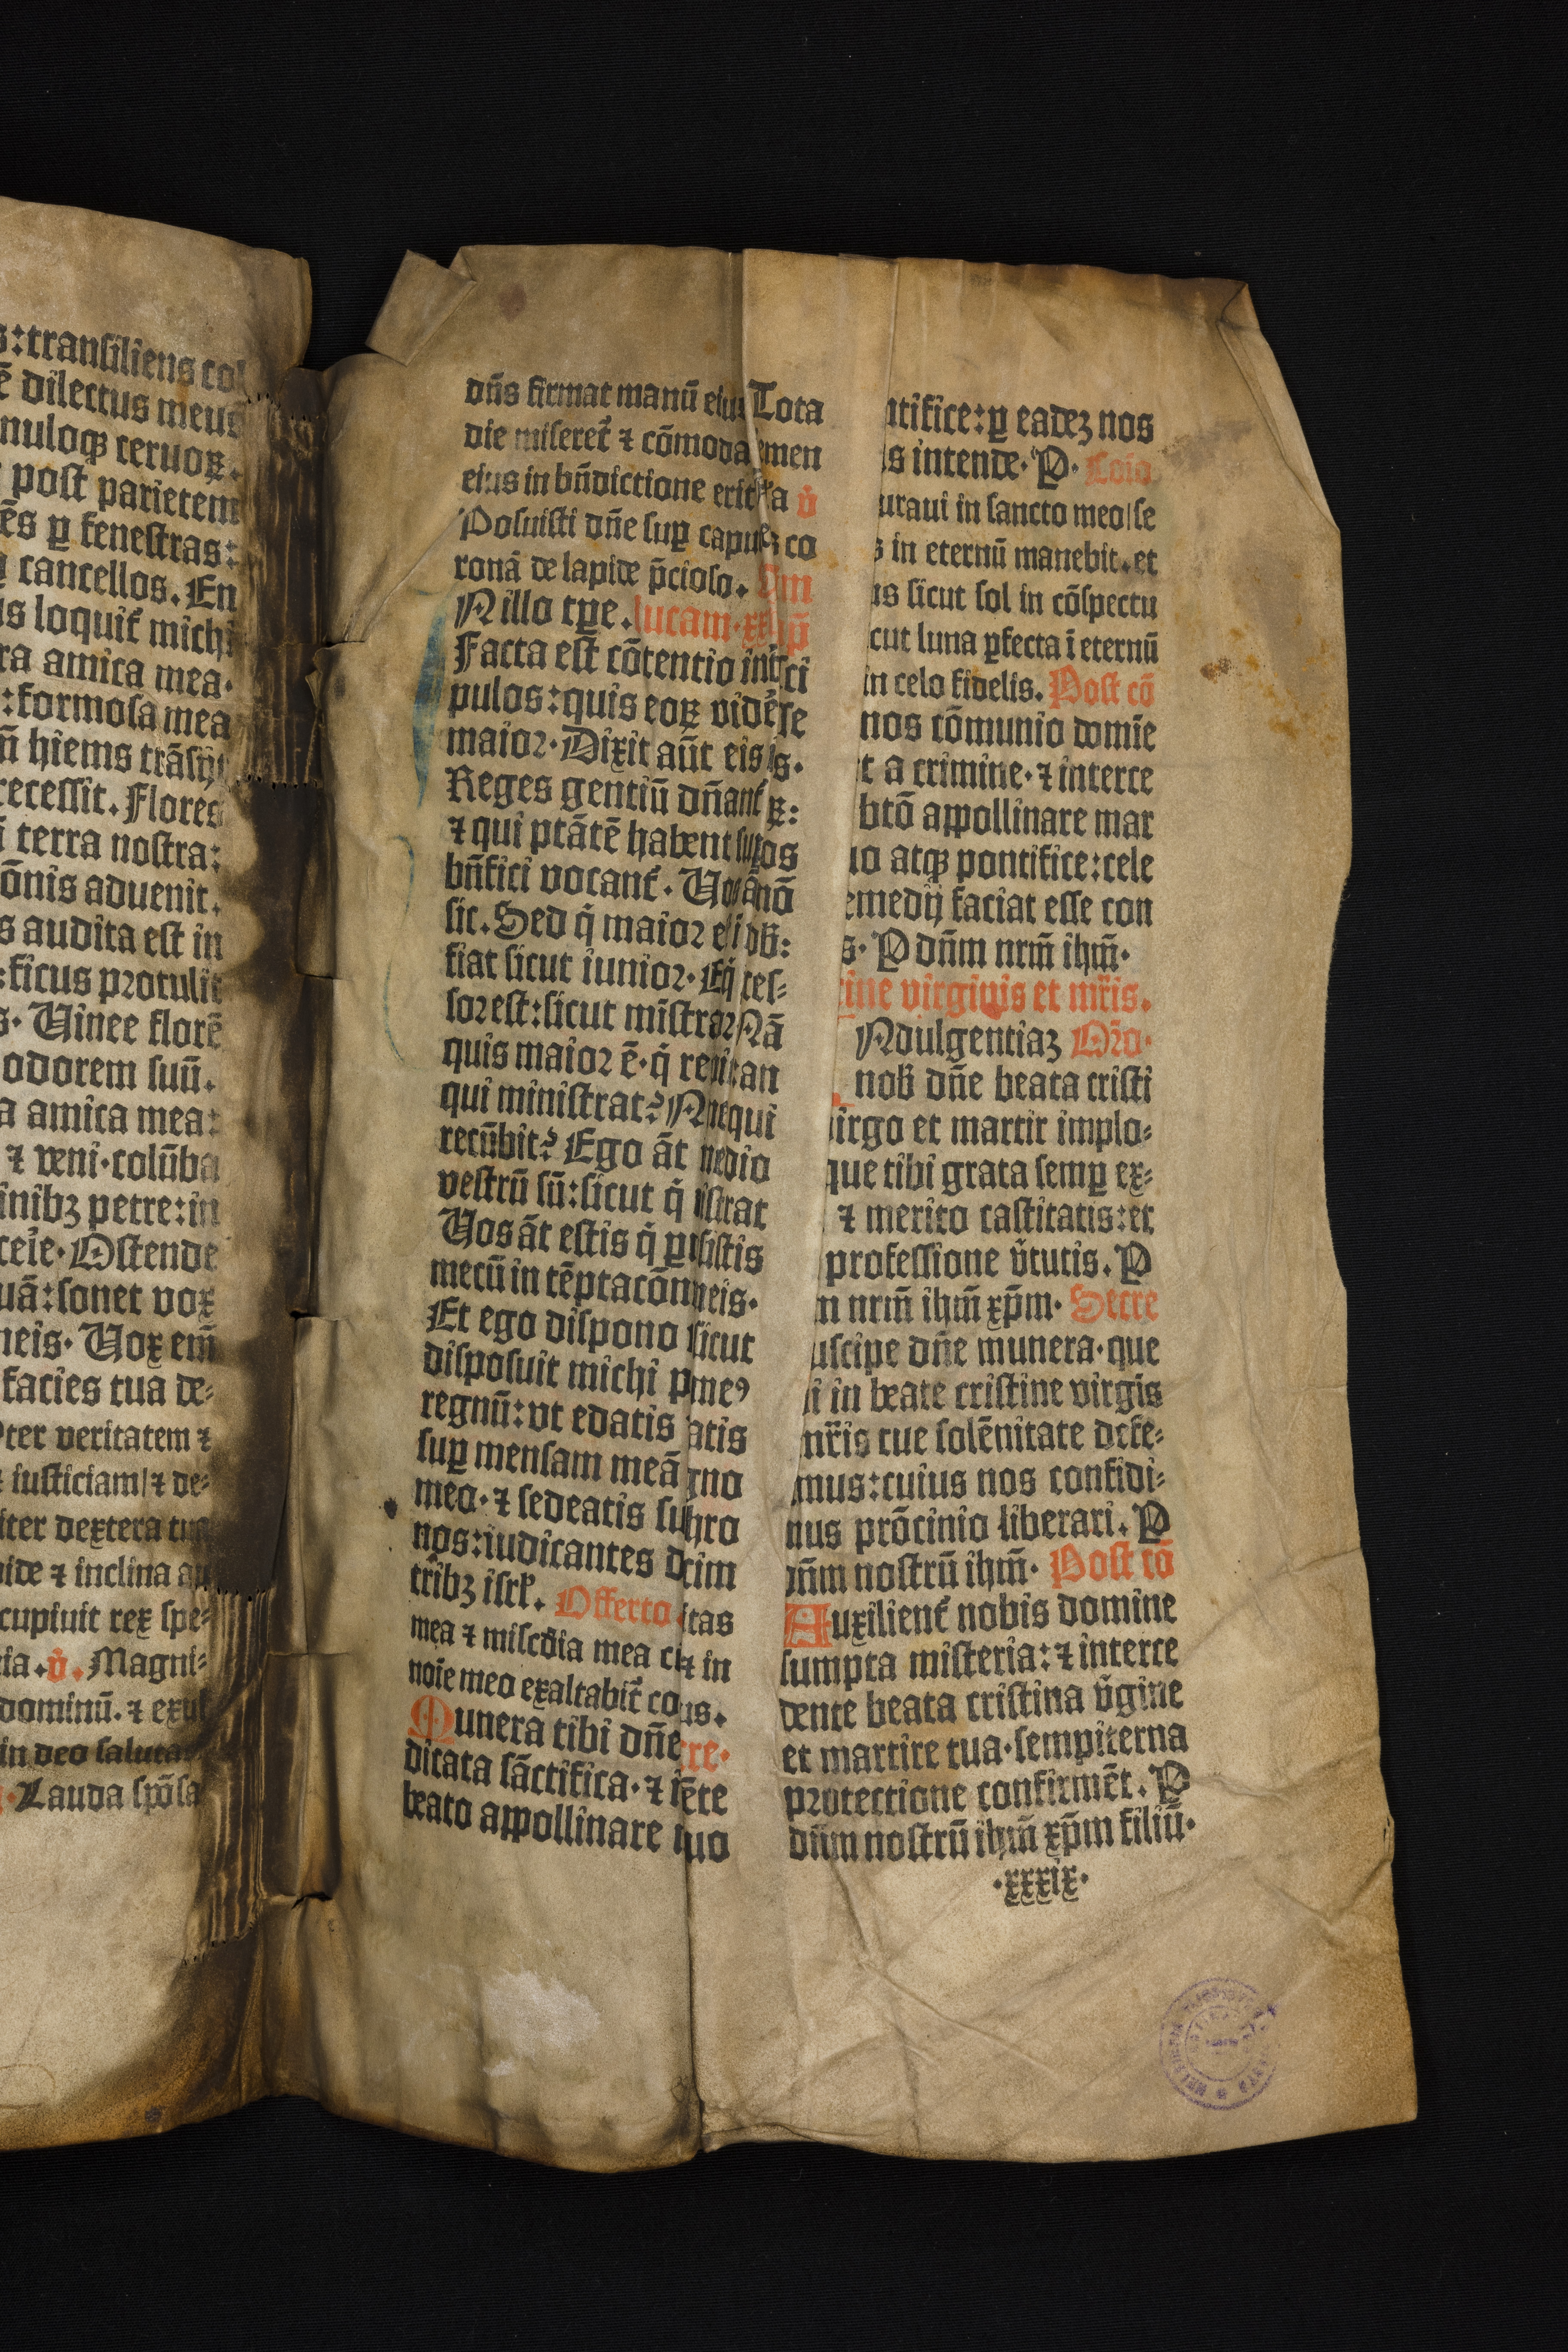 s:transiliens col
ē dilectus meus
nuloqꝫ ceruoꝝ.
post parietem
ēs ꝑ fenestras:
cancellos. En
us loquit᷑ michi
ra amica mea.
:formosa mea
ū hiems trāsijt
recessit. Flores
ī terra nostra:
ōnis aduenit.
s audita est in
:ficus protulit
s. Uinee florē
odorem suū.
a amica mea:
⁊ veni. colūba
inibꝫ petre: in
ceīe. Ostende
uā: sonet vox
neis. Uox em̄
facies tua de⸗
pter veritatem ⁊
⁊ iusticiam / ⁊ de⸗
iter dextera tua
vide ⁊ inclina au
cupiuit rex spe⸗
ia. v̊. Magni⸗
dominū. ⁊ exul
in deo salutar
Lauda spōsa
dn̄s firmat manū eius Tota
die miseret᷑ ⁊ cōmoda emen
eius in bn̄dictione erit a v̊
Posuisti dn̄e suꝑ capu co
ronā de lapide p̄cioso.
N illo tꝑe. lucam. xx
Facta est cōtentio int ci
pulos: quis eoꝝ vidē se
maior. Dixit aūt eis is.
Reges gentiū dn̄ant᷑ ꝝ:
⁊ qui ptātē habent su os
bn̄fici vocant᷑. Uo ā nō
sic. Sed q̄ maior e i ob̄:
fiat sicut iunior. Et q̄ ces⸗
sor est: sicut mīstrar Nā
quis maior ē. q̄ re an
qui ministrat? N e qui
recūbit? Ego āt medio
vestrū sū: sicut q̄ istrat
Uos āt estis q̄ ꝑ sistis
mecū in tēptacōn meis.
Et ego dispono sicut
disposuit michi p meꝰ
regnū: vt edatis atis
suꝑ mensam meā gno
meo. ⁊ sedeatis su hro
nos: iudicantes d cim
tribꝫ isrl̄. Offerto itas
mea ⁊ mīscd̄ia mea cū ⁊ in
noīe meo exaltabit᷑ co us.
Munera tibi dn̄e re.
dicata sāctifica. ⁊ i ēte
beato appollinare tuo
ntifice: ꝑ eadeꝫ nos
s intende. P. Coīo
uraui in sancto meo / se
s in eternū manebit. et
us sicut sol in cōspectu
cut luna ꝑfecta ī eternū
in celo fidelis. Post cō
nos cōmunio domīe
t a crimine. ⁊ interce
btō appollinare mar
uo atqꝫ pontifice: cele
emedij faciat esse con
s. P dn̄m nrm̄ ihm̄.
ine virginis et mr̄is.
Ndulgentiaꝫ Or̄o.
nob̄ dn̄e beata cristi
uirgo et martir implo⸗
que tibi grata semꝑ ex⸗
⁊ merito castitatis: et
professione v̄tutis. P
m nrm̄ ihm̄ xp̄m. Secre
uscipe dn̄e munera. que
i in beate cristine virgīs
mr̄is tue solēnitate defe⸗
mus: cuius nos confidi⸗
mus prōcinio liberari. P
dn̄m nostrū ihm̄. Post cō
Auxilient᷑ nobis domine
sumpta misteria: ⁊ interce
dente beata cristina v̄gine
et martire tua. sempiterna
protectione confirmēt. P
dn̄m nostrū ihm̄ xp̄m filiū.
.xxxix.